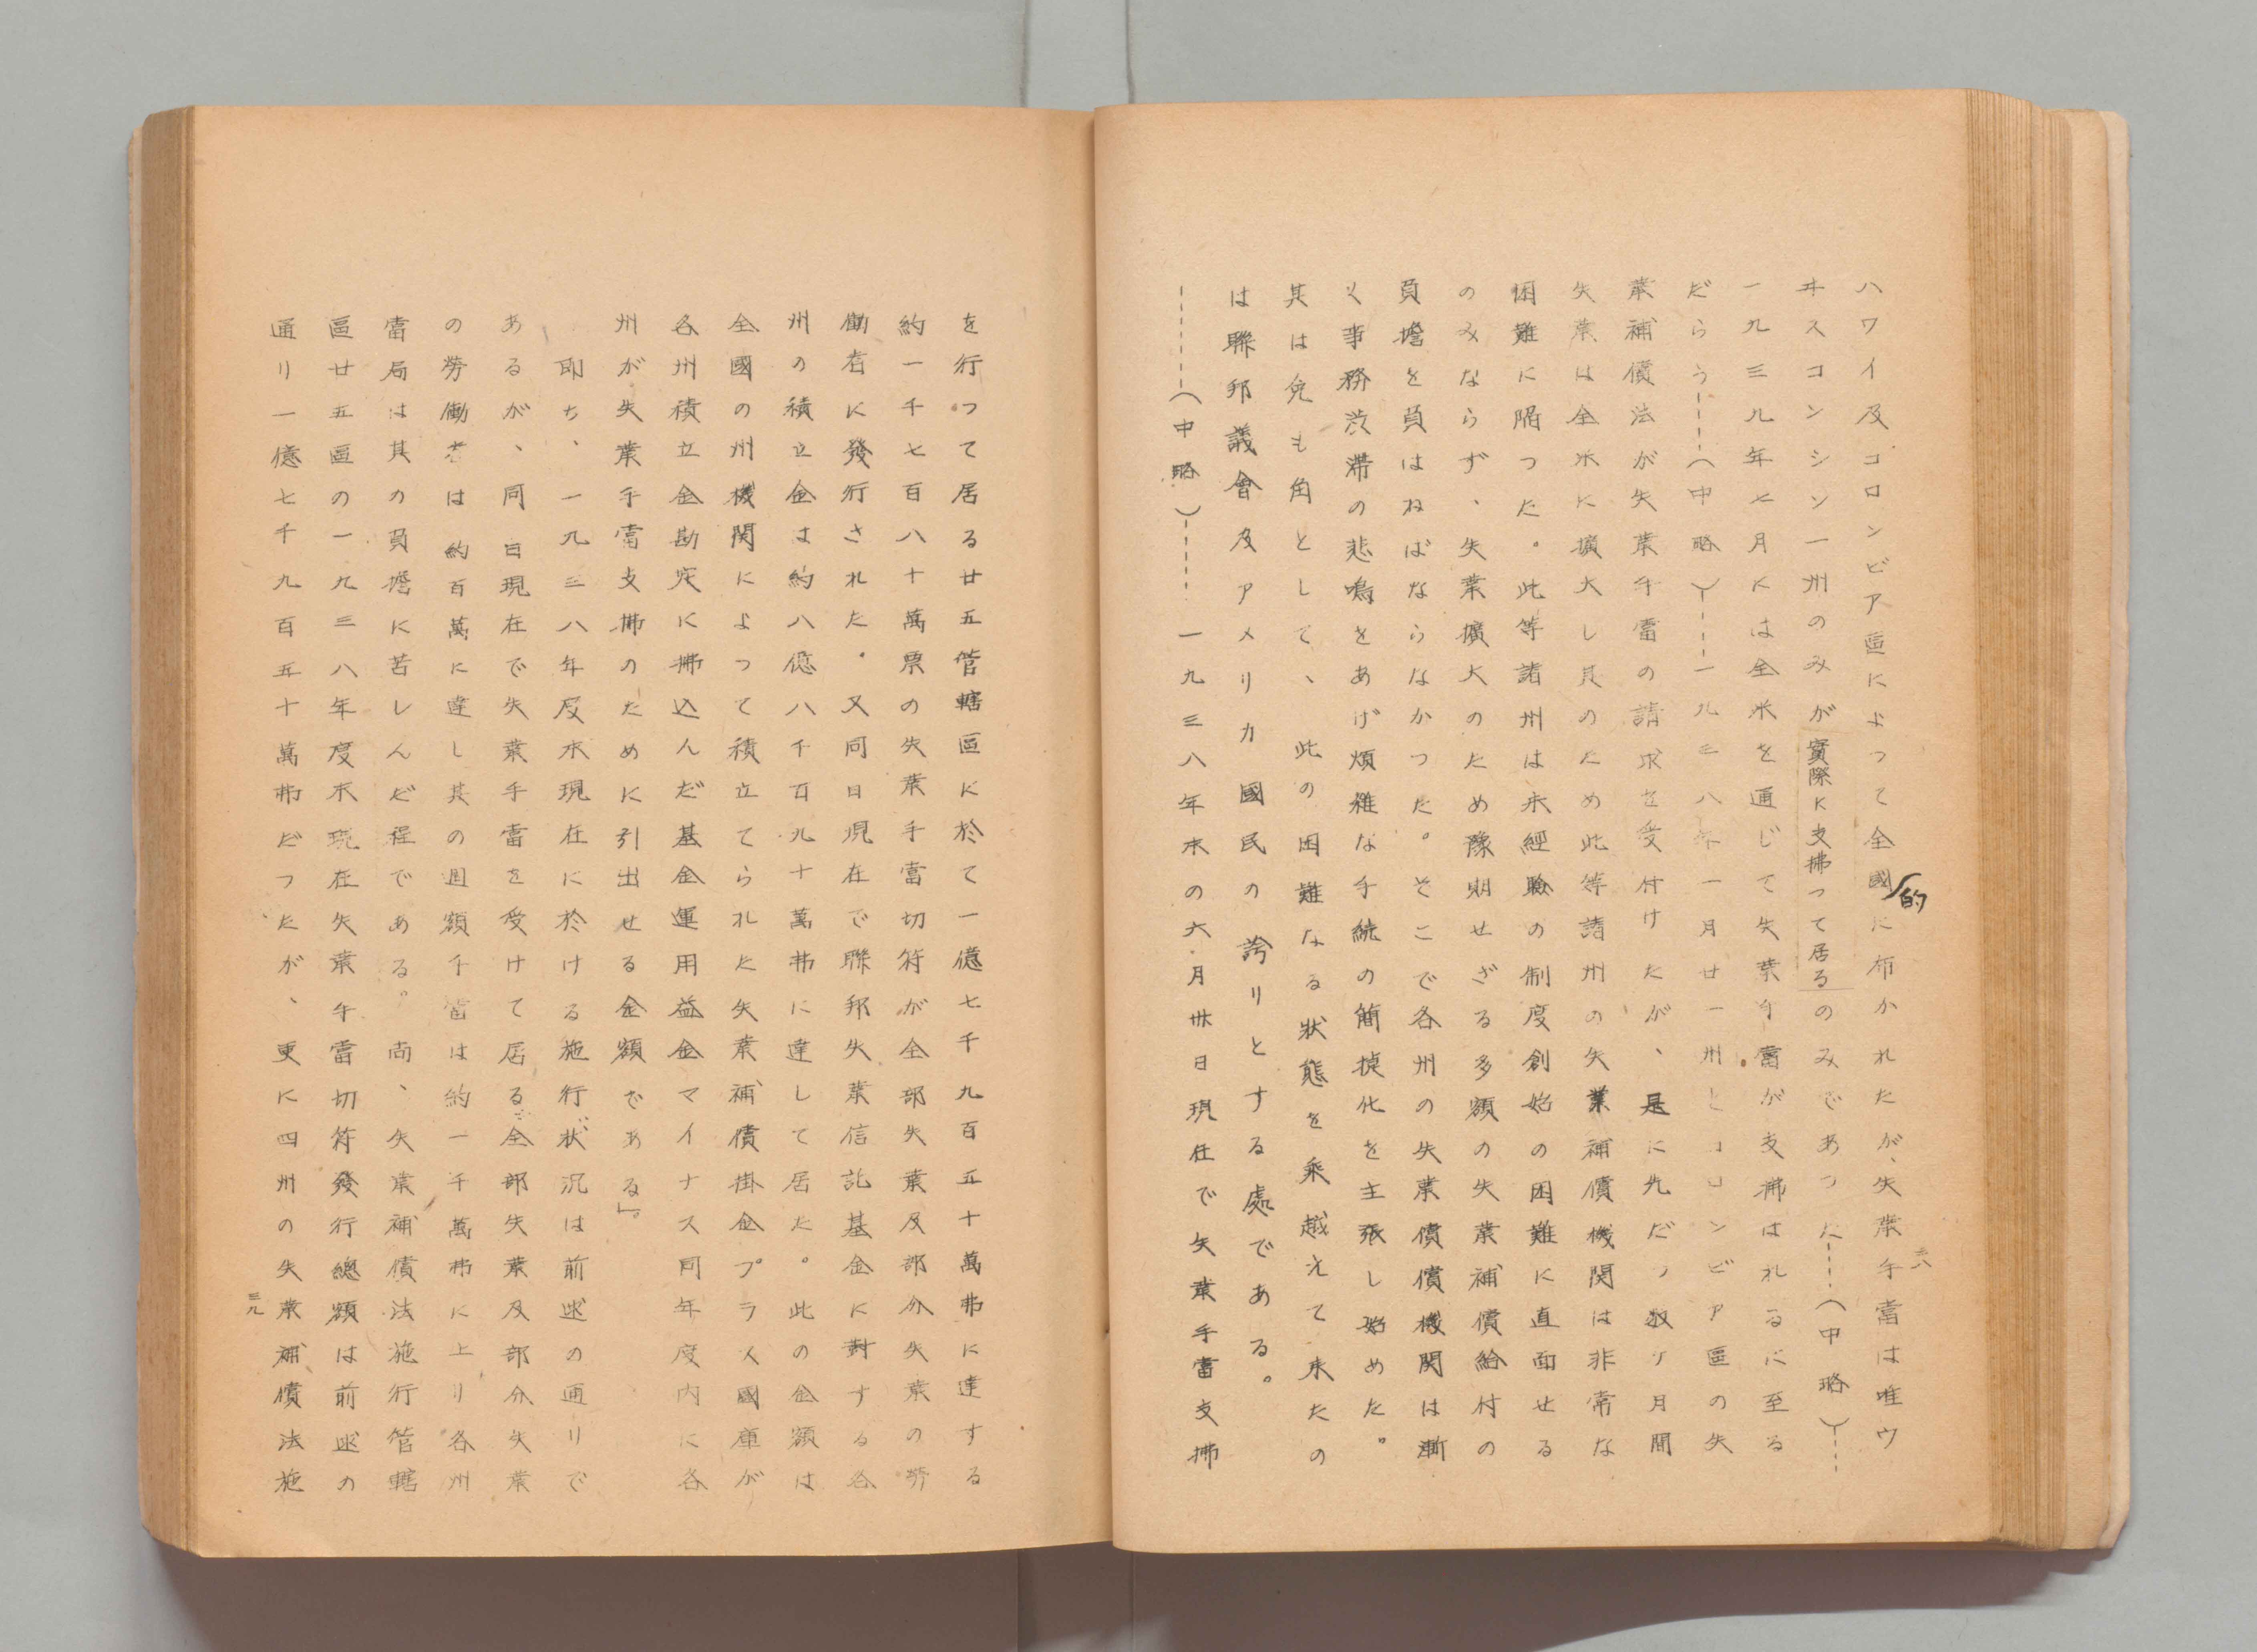 ハワイ及コロンビア區によって全國的に布かれたが、失業手當は唯ウ
ヰスコンシン一州のみが實際に支拂って居るのみであった‥‥(中略)‥‥
一九三九年七月には全米を通じて失業手當が支拂はれるに至る
だらう‥‥(中略)‥‥一九三八年一月廿一州とコロンビア區の失
業補償法が失業手當の請求を受付けたが、是に先だつ数ヶ月間
失業は全米に擴大し其のため此等諸州の失業補償機関は非常な
困難に陥った。此等諸州は未經驗の制度創始の困難に直面せる
のみならず、失業擴大のため豫期せざる多額の失業補償給付の
負擔を負はねばならなかった。そこで各州の失業償償機関は漸
く事務渋滞の悲鳴をあげ煩雑な手続の簡捷化を主張し始めた。
其は兎も角として、此の困難なる狀態を乘越えて来たの
は聯邦議會及アメリカ國民の誇りとする處である。
‥‥‥(中略)‥‥一九三八年末の六月卅日現在で失業手當支拂
三八
を行って居る廿五管轄區に於て一億七千九百五十萬弗に達する
約一千七百八十萬票の失業手當切符が全部失業及部分失業の勞
働者に發行された。又同日現在で聯邦失業信託基金に對する各
州の積立金は約八億八千百九十萬弗に達して居た。此の金額は
全國の州機関によって積立てられた失業補償掛金プラス國庫が
各州積立金勘定に拂込んだ基金運用益金マイナス同年度内に各
州が失業手當支拂のために引出せる金額である」。
即ち、一九三八年度末現在に於ける施行狀況は前述の通りで
あるが、同日現在で失業手當を受けて居る全部失業及部分失業
の勞働者は約百萬に達し其の週額手當は約一千萬弗に上り各州
當局は其の負擔に苦しんだ程である。尚、失業補償法施行管轄
區廿五區の一九三八年度末現在失業手當切符發行總額は前述の
通り一億七千九百五十萬弗だったが、更に四州の失業補償法施
三九